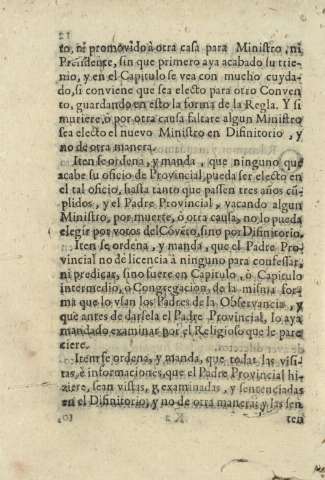 to, ni promovido à otra casa para Ministro, ni
Presidente, sin que primero aya acabado su trie-
nio, y en el Capitulo se vea con mucho cuyda-
do, si conviene que sea electo para otro Conven
to, guardando en esto la forma de la Regla. Y si
muriere, ò por otra causa faltare algun Ministro
sea electo el nuevo Ministro en Difinitorio, y
no de otra manera.
Iten se ordena, y manda, que ninguno que
acabe su oficio de Provincial, pueda ser electo en
el tal oficio, hasta tanto que passen tres años cũ-
plidos, y el Padre Provincial, vacando algun
Ministro, por muerte, ò otra causa, no lo pueda
elegir por votos del Covẽto, sino por Difinitorio.
Iten se ordena, y manda, que el Padre Pro-
vincial no de licencia à ninguno para confessar,
ni predicar, sino fuere en Capitulo, ò Capitulo
intermedio, ò Congregacion, de la misma for-
ma que lo vsan los Padres de la Observancia, y
que antes de darsela el Padre Provincial, lo aya
mandado examinar por el Religioso que le pare
ciere.
Iten se ordena, y manda, que todas las visi-
tas, è informaciones, que el Padre Provincial hi-
ziere, sean vistas, y examinadas, y sentenciadas
en el Difinitorio, y no de otra manera; y las sen
ten